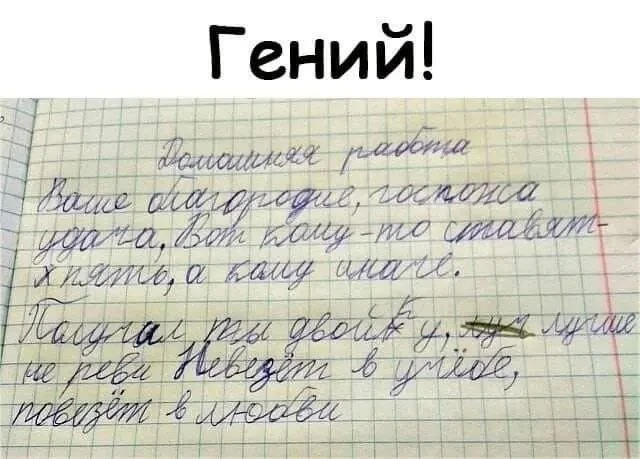 Гений!
Домошняя работа
Ваше благородие, госпожа
удача, Вот кому-то ставят-
х пять, а кому иначе.
Получал ты двойку, луч лучше
не реви Невезёт в учёбе,
повезёт в любви